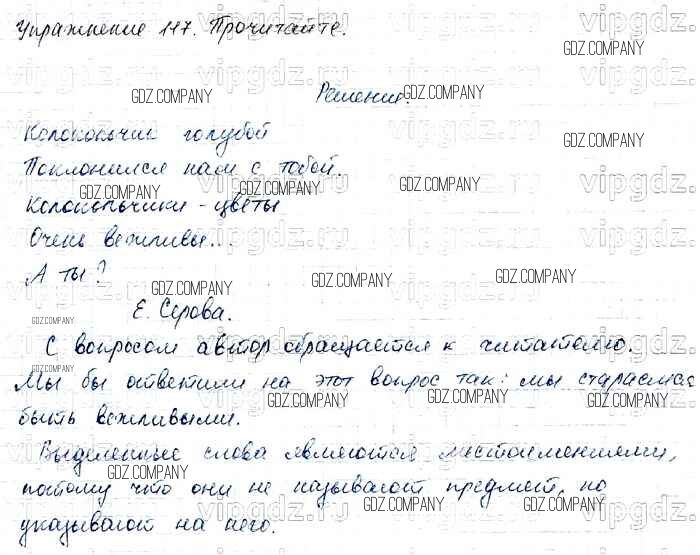 Упражнение 117. Прочитайте.
Решение.
Колокольчик голубой
Поклонился нам с тобой.
Колокольчики - цветы
Очень вежливы...
А ты?
Е. Серова.
С вопросом автор обращается к читателю.
Мы бы ответили на этот вопрос так: мы стараемся
быть вежливыми.
Выделенные слова являются местоимениями,
потому что они не называют предмет, но
указывают на него.
GDZ.COMPANY
vipgdz.ru